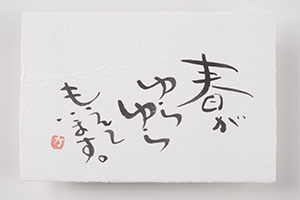 春が
ゆら
ゆら
もえて
います。